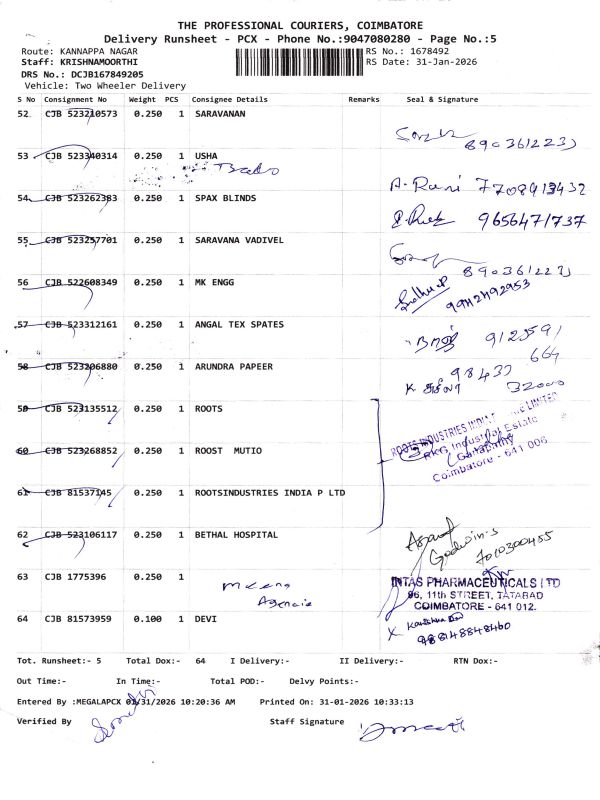 THE PROFESSIONAL COURIERS, COIMBATORE
Delivery Runsheet - PCX - Phone No.:9047080280 - Page No.:5
Route: KANNAPPA NAGAR
RS No.: 1678492
Staff: KRISHNAMOORTHI
RS Date: 31-Jan-2026
DRS No.: DCJB167849205
Vehicle: Two Wheeler Delivery
S No Consignment No Weight PCS Consignee Details Remarks Seal & Signature
52. CJB 523210573 0.250 1 SARAVANAN
8903612233
53 CJB 523340314 0.250 1 USHA
A. Rani 7708913432
54 CJB 523262383 0.250 1 SPAX BLINDS
9656471737
55 CJB 523257701 0.250 1 SARAVANA VADIVEL
8903612233
56 CJB 522608349 0.250 1 MK ENGG
57 CJB 523312161 0.250 1 ANGAL TEX SPATES
58 CJB 523206880 0.250 1 ARUNDRA PAPEER
59 CJB 523135512 0.250 1 ROOTS
60 CJB 523268852 0.250 1 ROOST MUTIO
Coimbatore - 641 006
61 CJB 81537145 0.250 1 ROOTSINDUSTRIES INDIA P LTD
62 CJB 523106117 0.250 1 BETHAL HOSPITAL
7010300455
63 CJB 1775396 0.250 1
Meena
Agencie
INTAS PHARMACEUTICALS LTD
96, 11th STREET, TATABAD
COIMBATORE - 641 012.
64 CJB 81573959 0.100 1 DEVI
Tot. Runsheet:- 5 Total Dox:- 64 I Delivery:- II Delivery:- RTN Dox:-
Out Time:- In Time:- Total POD:- Delvy Points:-
Entered By :MEGALAPCX 01/31/2026 10:20:36 AM Printed On: 31-01-2026 10:33:13
Verified By Staff Signature